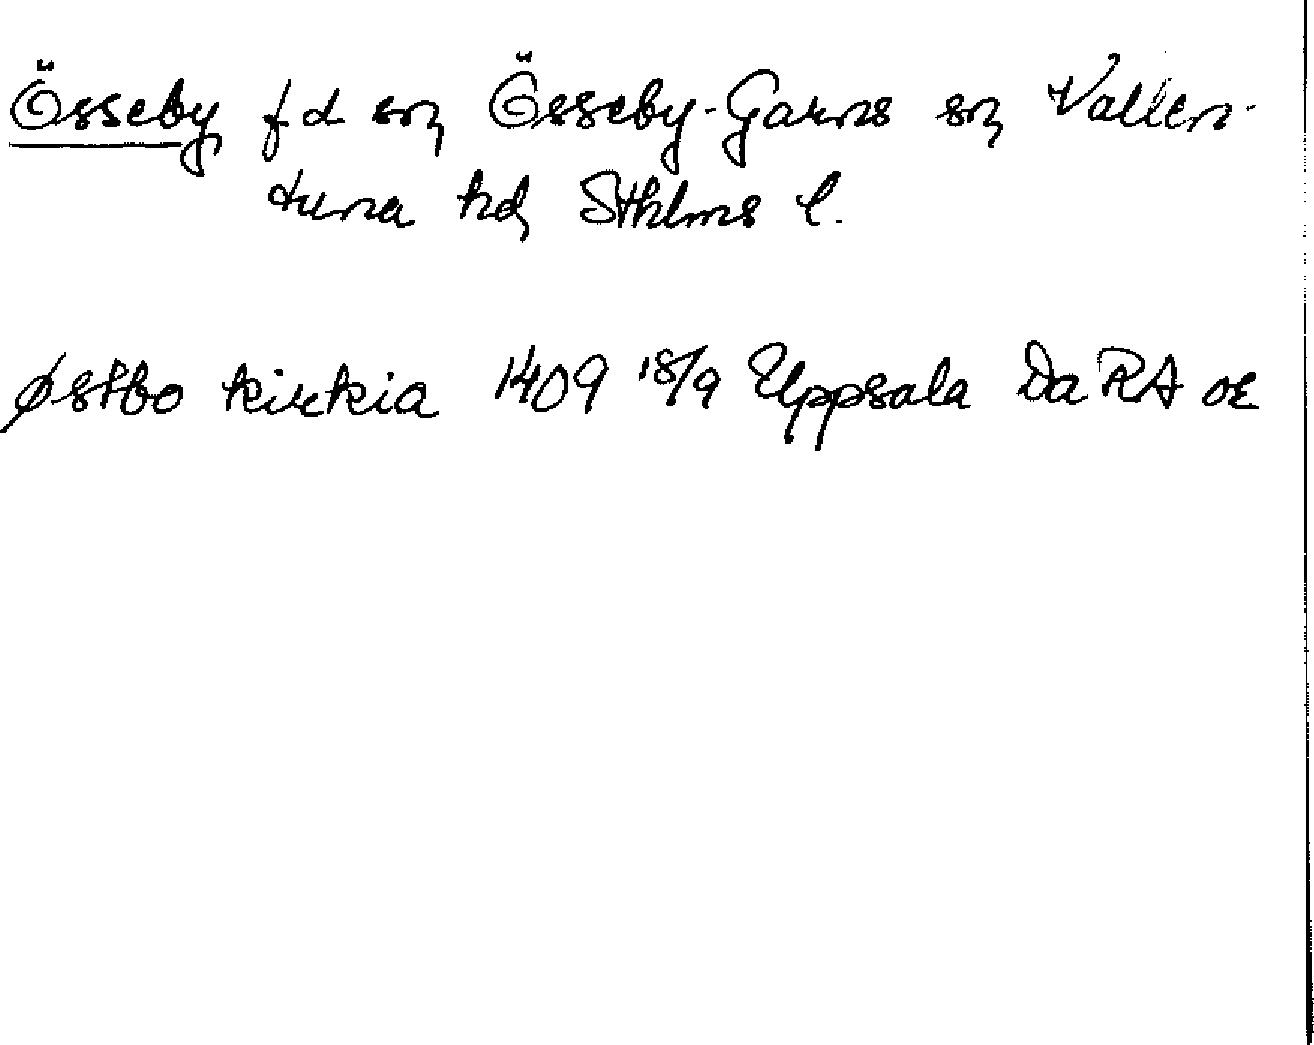 Össeby f d sn Össeby-Garns sn Vallen-
tuna hd Sthlms l.
Østbo kirkia 1409 18/9 Uppsala DaRA or